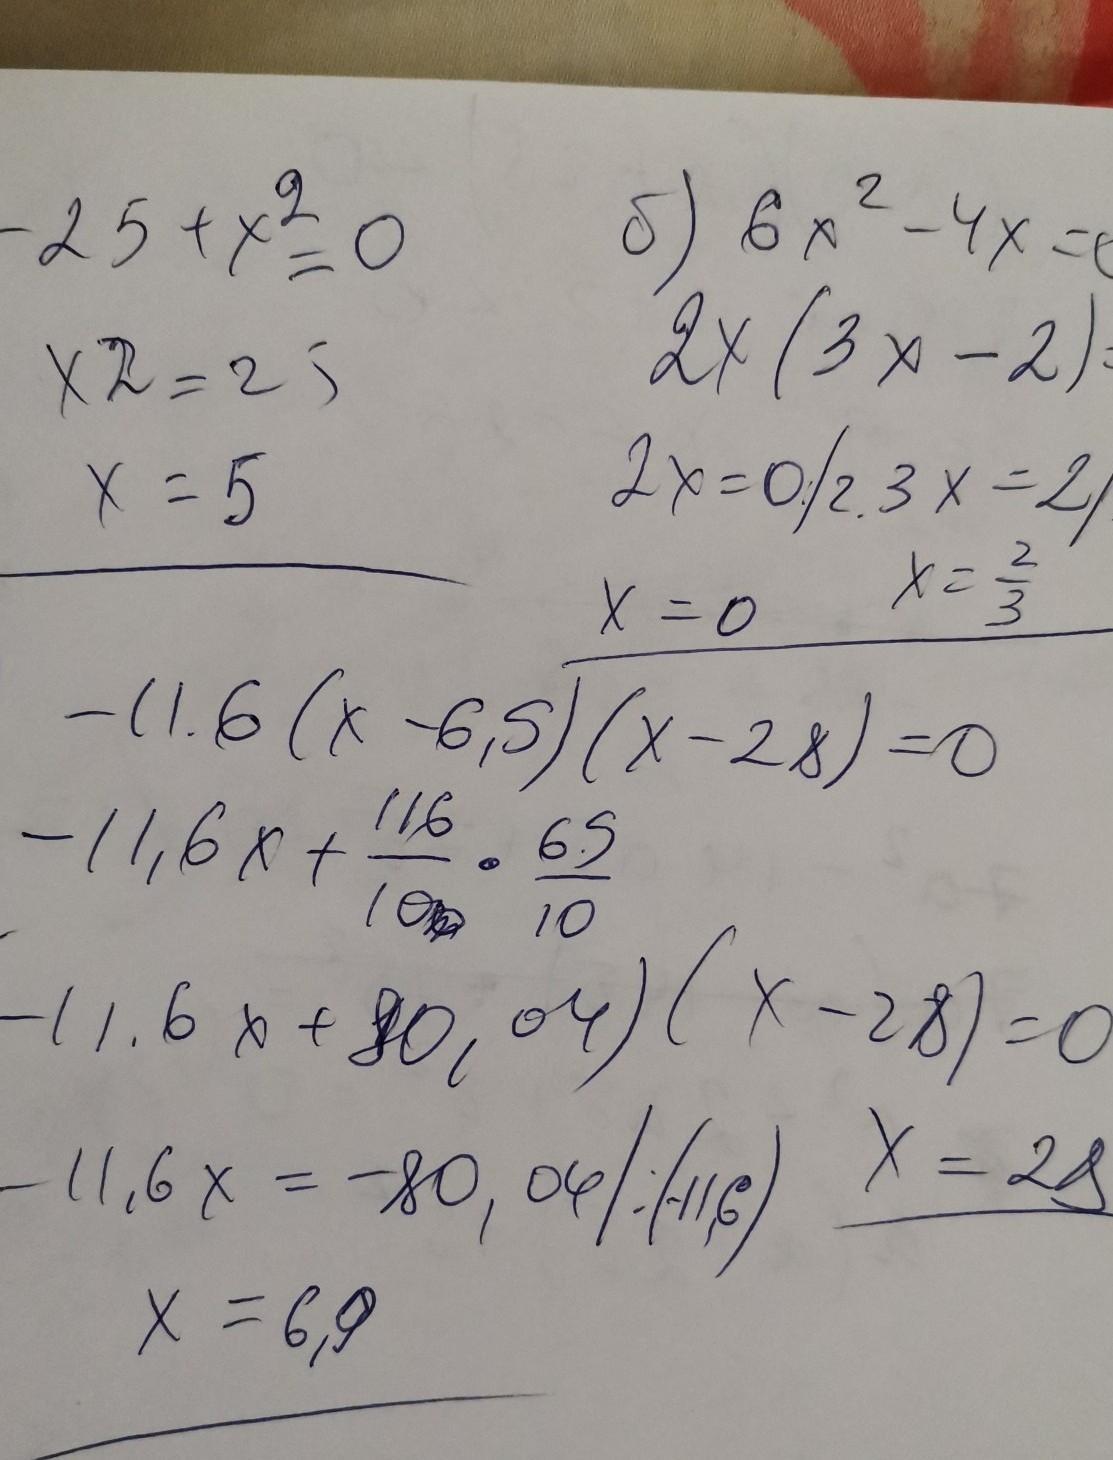 -25+x²=0
x2=25
x=5
б) 6x²-4x=
2x(3x-2)=
2x=0/:2. 3x=2/
x=0 x=2/3
-11.6(x-6,5)(x-28)=0
-11,6x+116/10•65/10
-11.6x+80,04)(x-28)=0
-11,6x=-80,04/:(-11,6) x=28
x=6,9